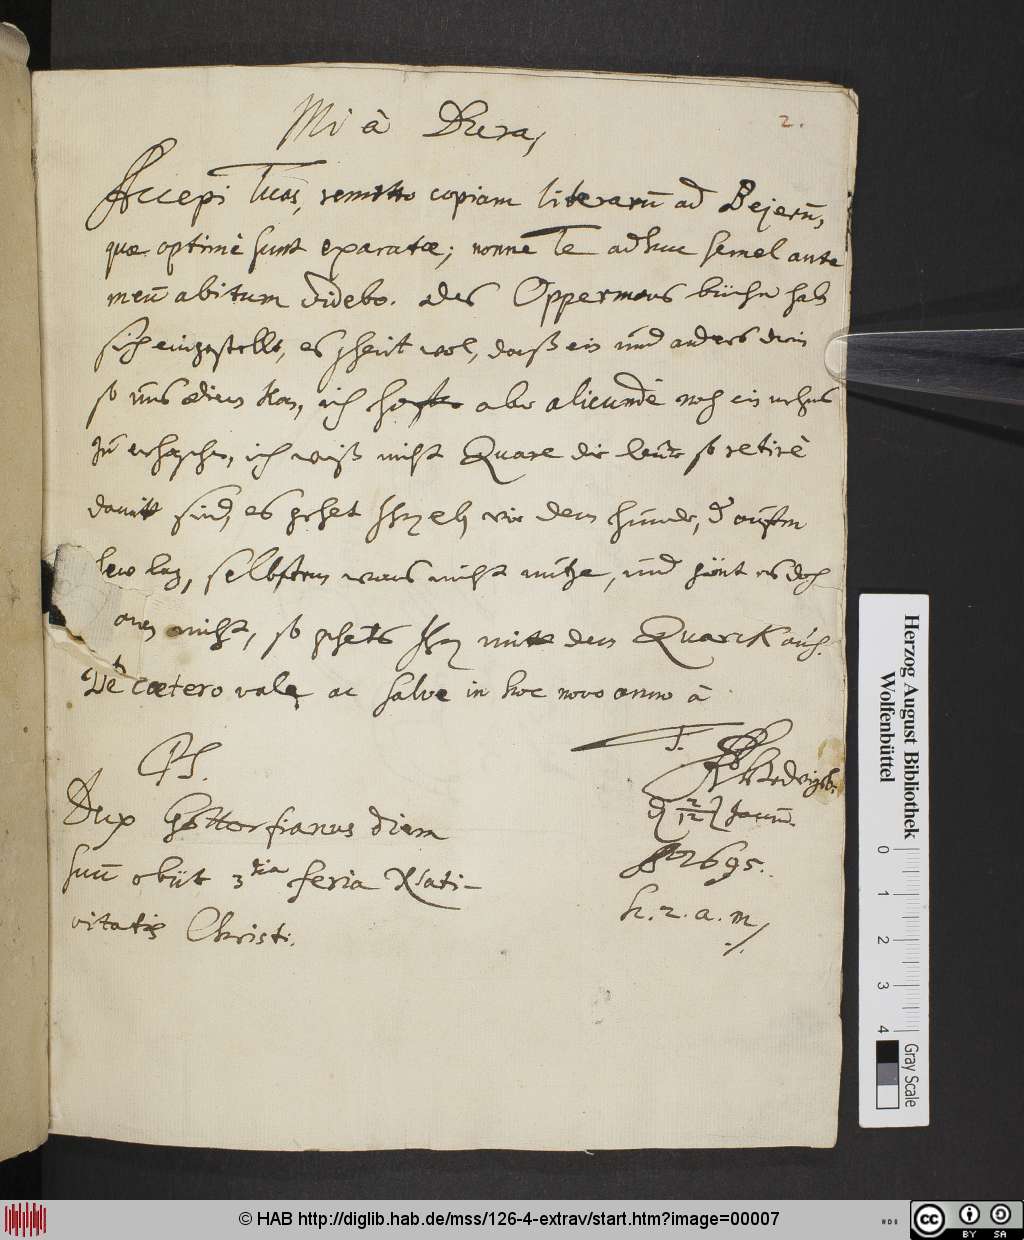 2.
Mi à Dhera,
Accepi Tuas, remitto copiam literarū ad Bejerū,
quæ optimè sunt exaratæ; nonne Te adhuc semel ante
meū abitum videbo. des Oppermans bücher hab
sich eingestellt, es scheint wol, daß ein und anders drin
so uns dienen kan, ich hoffe aber alicunde noch ein mehres
zu erhaschen, ich weiß nicht Quare die leute so retirè
damitt sind, es gehet wie dem hunde, d aufm
hew lag, selbsten was nicht nütze, und gönt es doch
nicht, so gehets mitt dem Quarck auch.
De cætero vale ac salve in hoc novo anno à
T.
PS.
Dux Gottorfianus diem
suū obiit 3tia feria Nati-
vitatis Christi.
d 2/12 Januar.
1695.
h. 2. a. m.
Herzog August Bibliothek
Wolfenbüttel
0 1 2 3 4
Gray Scale
© HAB http://diglib.hab.de/mss/126-4-extrav/start.htm?image=00007
cc BY SA